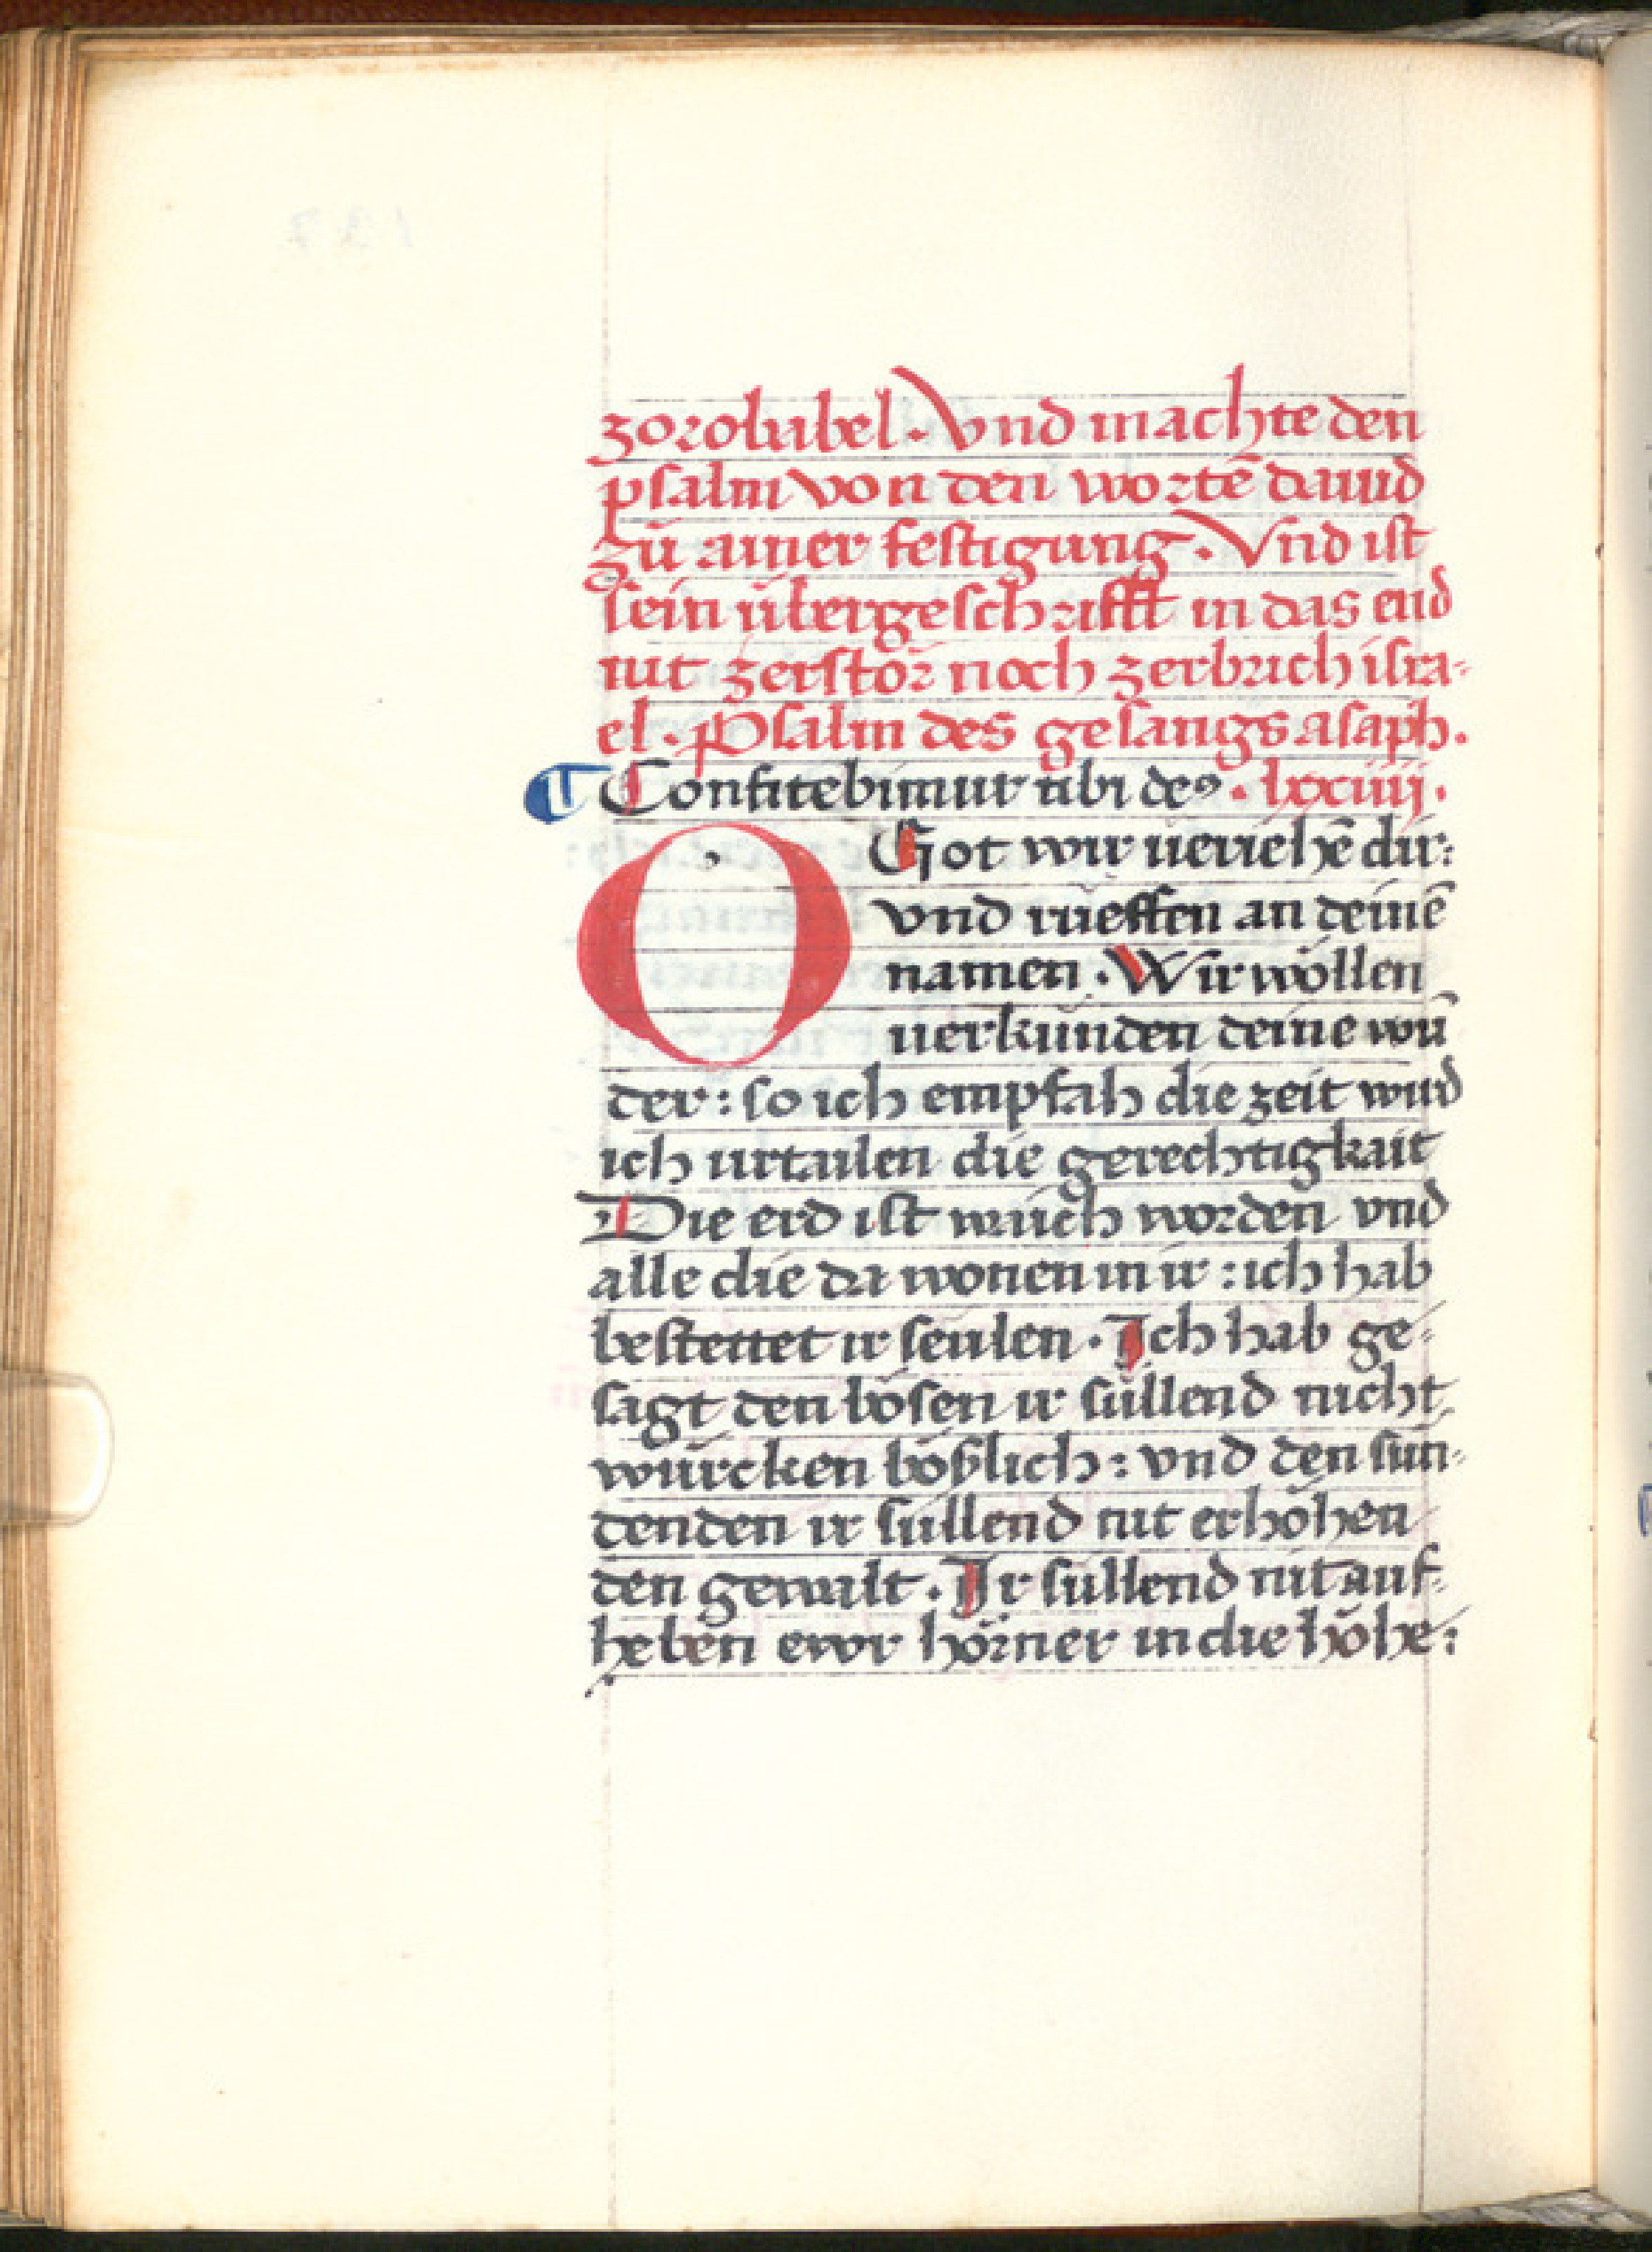 zorolubel. Vnd machte den
psalm von den wortē dauid
zū ainer festigung. Vnd ist
sein übergeschrifft in das end
nit zerstör noch zerbrich isra-
el. Psalm des gesangs asaph.
¶ Confitebimur tibi deꝰ. lxxiiij.
O Got wir veriehē dir:
vnd rüeffen an deinē
namen. Wir wöllen
verkünden deine wū
der: so ich empfah die zeit wird
ich urtailen die gerechtigkait
Die erd ist waich worden vnd
alle die da wonen in ir: ich hab
bestettet ir seulen. Ich hab ge-
sagt den bösen ir süllend nicht
würcken bößlich: vnd den sün-
denden ir süllend nit erhöhen
den gewalt. Ir süllend nit auf-
heben ewr hörner in die höhe: